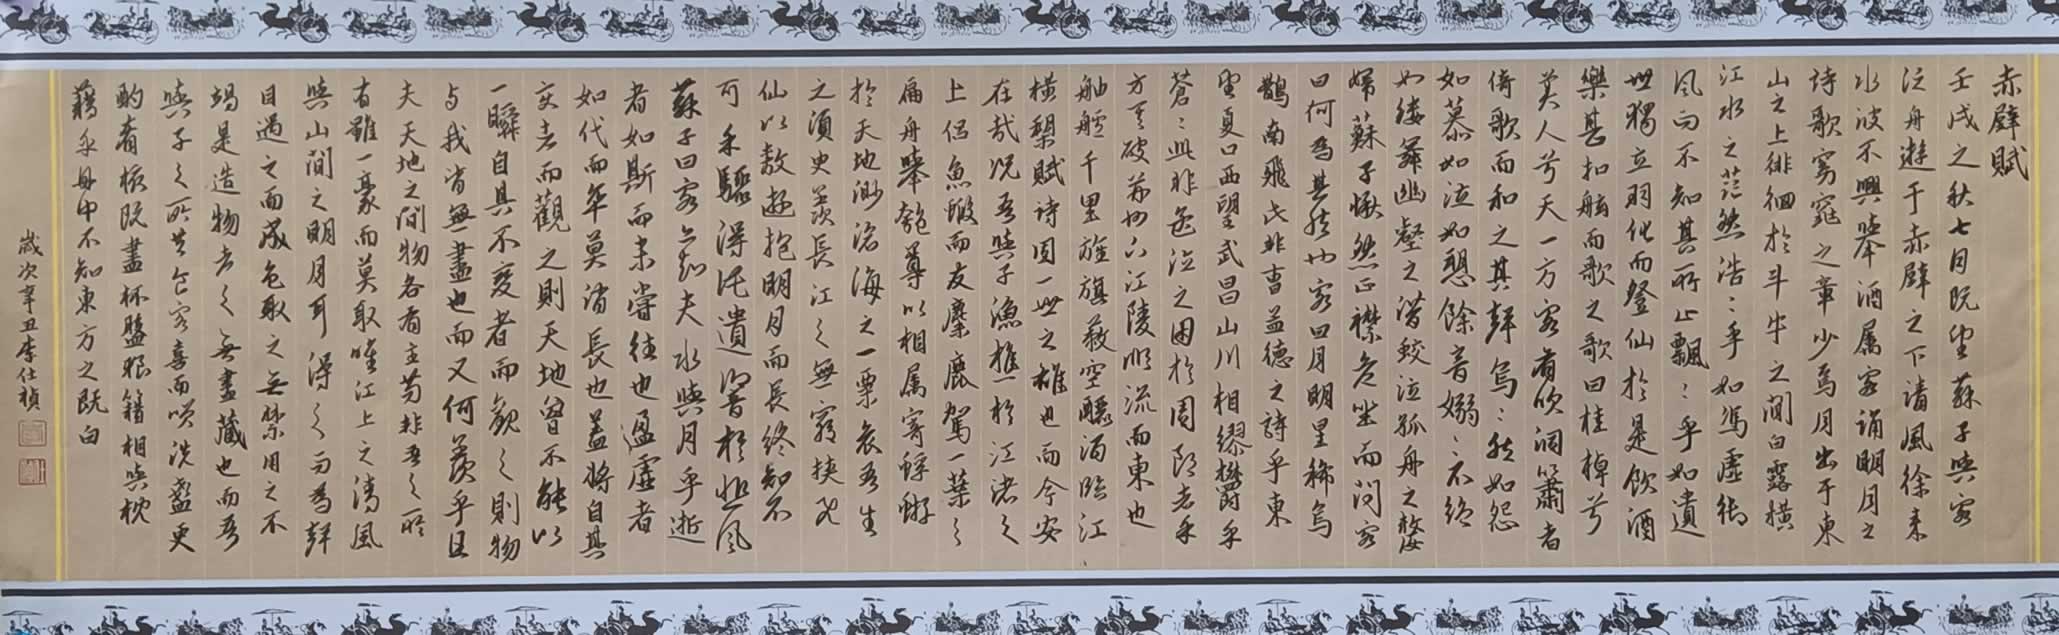 赤壁賦
壬戌之秋七月既望蘇子與客
泛舟遊于赤壁之下清風徐來
水波不興舉酒屬客誦明月之
詩歌窈窕之章少焉月出于東
山之上徘徊於斗牛之間白露橫
江水之茫然浩々乎如馮虛御
風而不知其所止飄々乎如遺
世獨立羽化而登仙於是飲酒
樂甚扣舷而歌之歌曰桂棹兮
美人兮天一方客有吹洞簫者
倚歌而和之其聲烏々然如怨
如慕如泣如愬餘音嫋々不絕
如縷舞幽壑之潛蛟泣孤舟之嫠
婦蘇子愀然正襟危坐而問客
曰何為其然也客曰月明星稀烏
鵲南飛此非曹孟德之詩乎東
望夏口西望武昌山川相繆鬱乎
蒼々此非孟德之困於周郎者乎
方其破荊州下江陵順流而東也
舳艫千里旌旗蔽空釃酒臨江
橫槊賦詩固一世之雄也而今安
在哉況吾與子漁樵於江渚之
上侶魚蝦而友麋鹿駕一葉之
扁舟舉匏尊以相屬寄蜉蝣
於天地渺滄海之一粟哀吾生
之須臾羨長江之無窮挾飛
仙以敖遊抱明月而長終知不
可乎驟得託遺響於悲風
蘇子曰客亦知夫水與月乎逝
者如斯而未嘗往也盈虛者
如代而卒莫消長也蓋將自其
變者而觀之則天地曾不能以
一瞬自其不變者而觀之則物
與我皆無盡也而又何羨乎且
夫天地之間物各有主苟非吾之所
有雖一豪而莫取唯江上之清風
與山間之明月耳得之而為聲
目遇之而成色取之無禁用之不
竭是造物者之無盡藏也而吾
與子之所共食客喜而笑洗盞更
酌肴核既盡杯盤狼籍相與枕
藉乎舟中不知東方之既白
歲次辛丑李仕禎